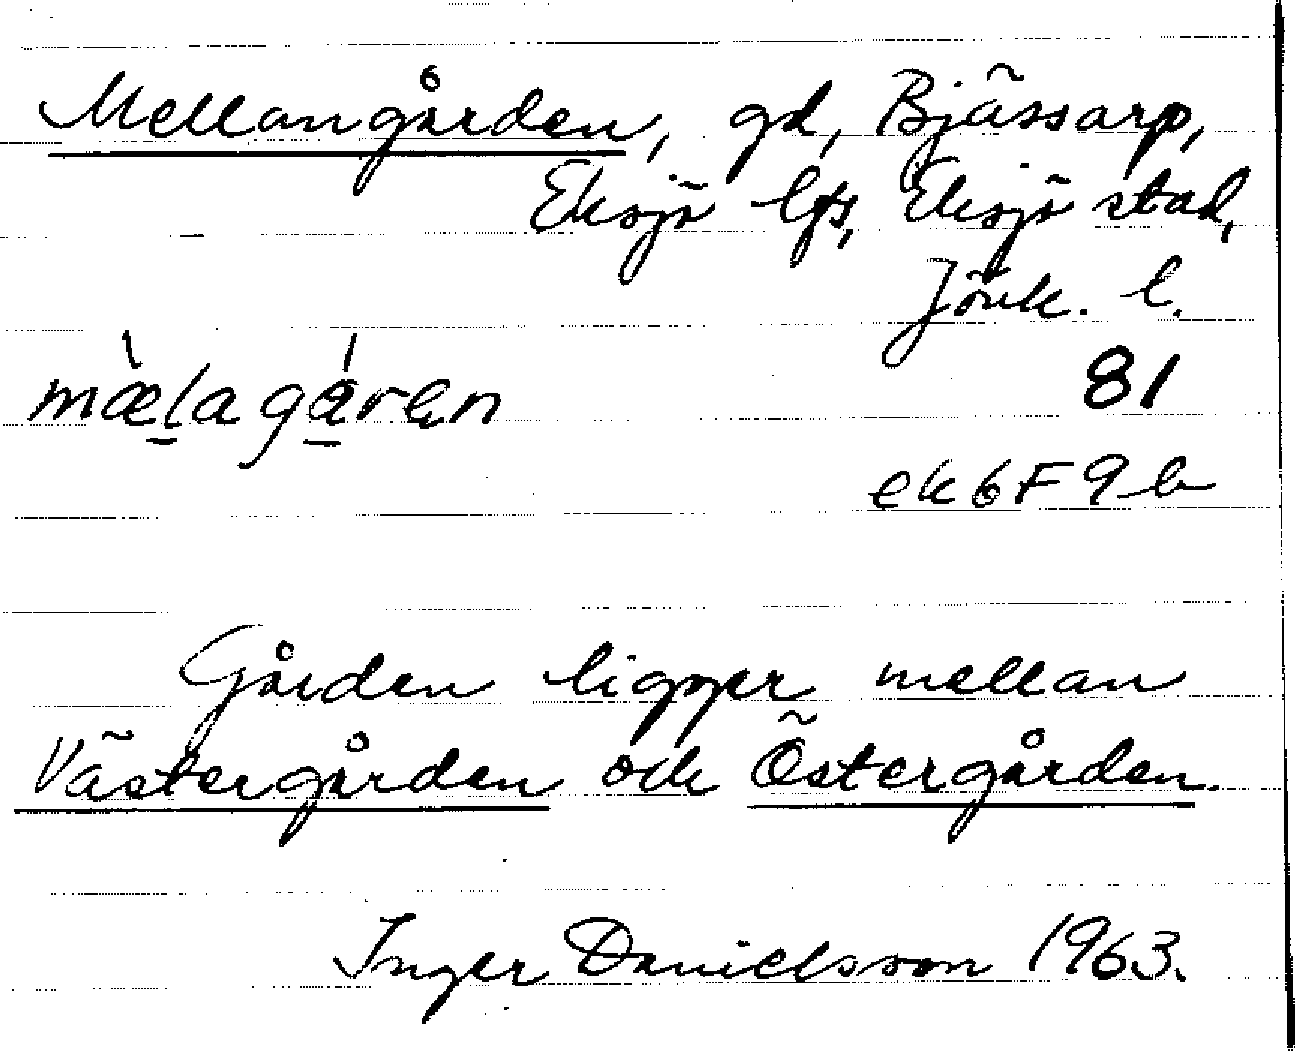 Mellangården, gd, Bjässarp,
Eksjö lfs, Eksjö stad,
Jönk. l.
mæ̀lagáren
81
ek 6F 9b
Gården ligger mellan
Västergården och Östergården.
Inger Danielsson 1963.